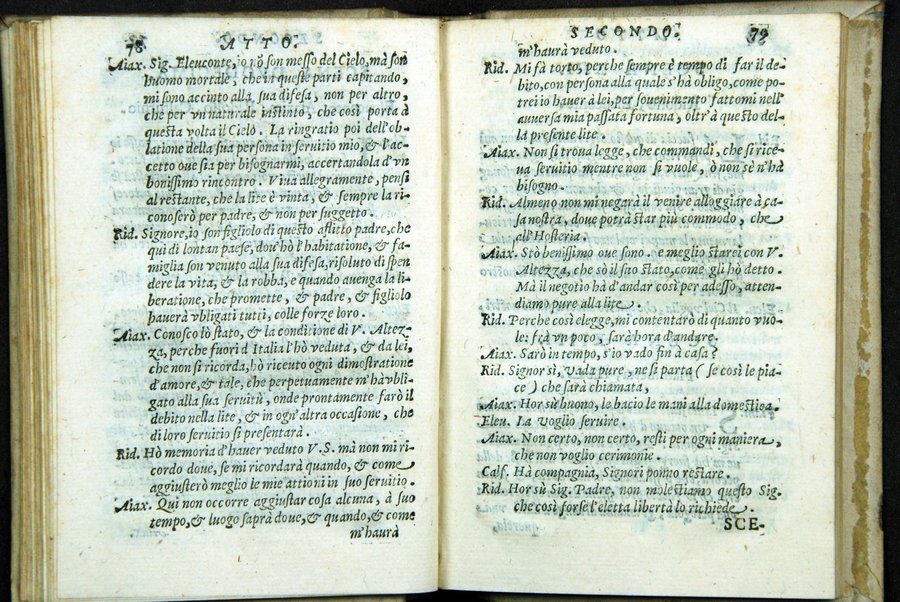 78 ATTO.
Aiax. Sig. Eleuconte, io nõ son messo del Cielo, mà son
huomo mortale, che in queste parti capitando,
mi sono accinto alla sua difesa, non per altro,
che per vn naturale instinto, che così porta à
questa volta il Cielo. La ringratio poi dell'ob-
latione della sua persona in seruitio mio, & l'ac-
cetto oue sia per bisognarmi, accertandola d'vn
bonissimo rincontro. Viua allegramente, pensi
al restante, che la lite è vinta, & sempre la ri-
conoserò per padre, & non per suggetto.
Rid. Signore, io son figliolo di questo aflitto padre, che
quì di lontan paese, dou'hò l'habitatione, & fa-
miglia son venuto alla sua difesa, risoluto di spen
dere la vita, & la robba, e quando auenga la li-
beratione, che promette, & padre, & figliolo
hauerà vbligati tutti, colle forze loro.
Aiax. Conosco lo stato, & la conditione di V. Altez-
za, perche fuori d'Italia l'hò veduta, & da lei,
che non si ricorda, hò riceuto ogni dimostratione
d'amore, & tale, che perpetuamente m'hà vbli-
gato alla sua seruitù, onde prontamente farò il
debito nella lite, & in ogn'altra occasione, che
di loro seruitio si presentarà.
Rid. Hò memoria d'hauer veduto V. S. mà non mi ri-
cordo doue, se mi ricordarà quando, & come
aggiusterò meglio le mie attioni in suo seruitio.
Aiax. Qui non occorre aggiustar cosa alcuna, à suo
tempo, & luogo saprà doue, & quando, & come
m'haurà
SECONDO. 79
m'haurà veduto.
Rid. Mi fà torto, perche sempre è tempo di far il de-
bito, con persona alla quale s'hà obligo, come po-
trei io hauer à lei, per souenimento fattomi nell'
auuersa mia passata fortuna, oltr'à questo del-
la presente lite.
Aiax. Non si troua legge, che commandi, che si rice-
ua seruitio mentre non si vuole, ò non sè n'hà
bisogno.
Rid. Almeno non mi negarà il venire alloggiare à ca-
sa nostra, doue potrà star più commodo, che
all'Hosteria.
Aiax. Stò benissimo oue sono. e meglio starei con V.
Altezza, che sò il suo stato, come gli hò detto.
Mà il negotio hà d'andar così per adesso, atten-
diamo pure alla lite.
Rid. Perche così elegge, mi contentarò di quanto vuo-
le: frà vn poco, sarà hora d'andare.
Aiax. Sarò in tempo, s'io vado fin à casa?
Rid. Signor sì, vada pure, ne si parta (se così le pia-
ce) che sarà chiamata,
Aiax. Hor sù buono, le bacio le mani alla domestica.
Eleu. La voglio seruire.
Aiax. Non certo, non certo, resti per ogni maniera,
che non voglio cerimonie.
Calf. Hà compagnia, Signori ponno restare.
Rid. Hor sù Sig. Padre, non molestiamo questo Sig.
che così forse l'eletta libertà lo richiede.
SCE-